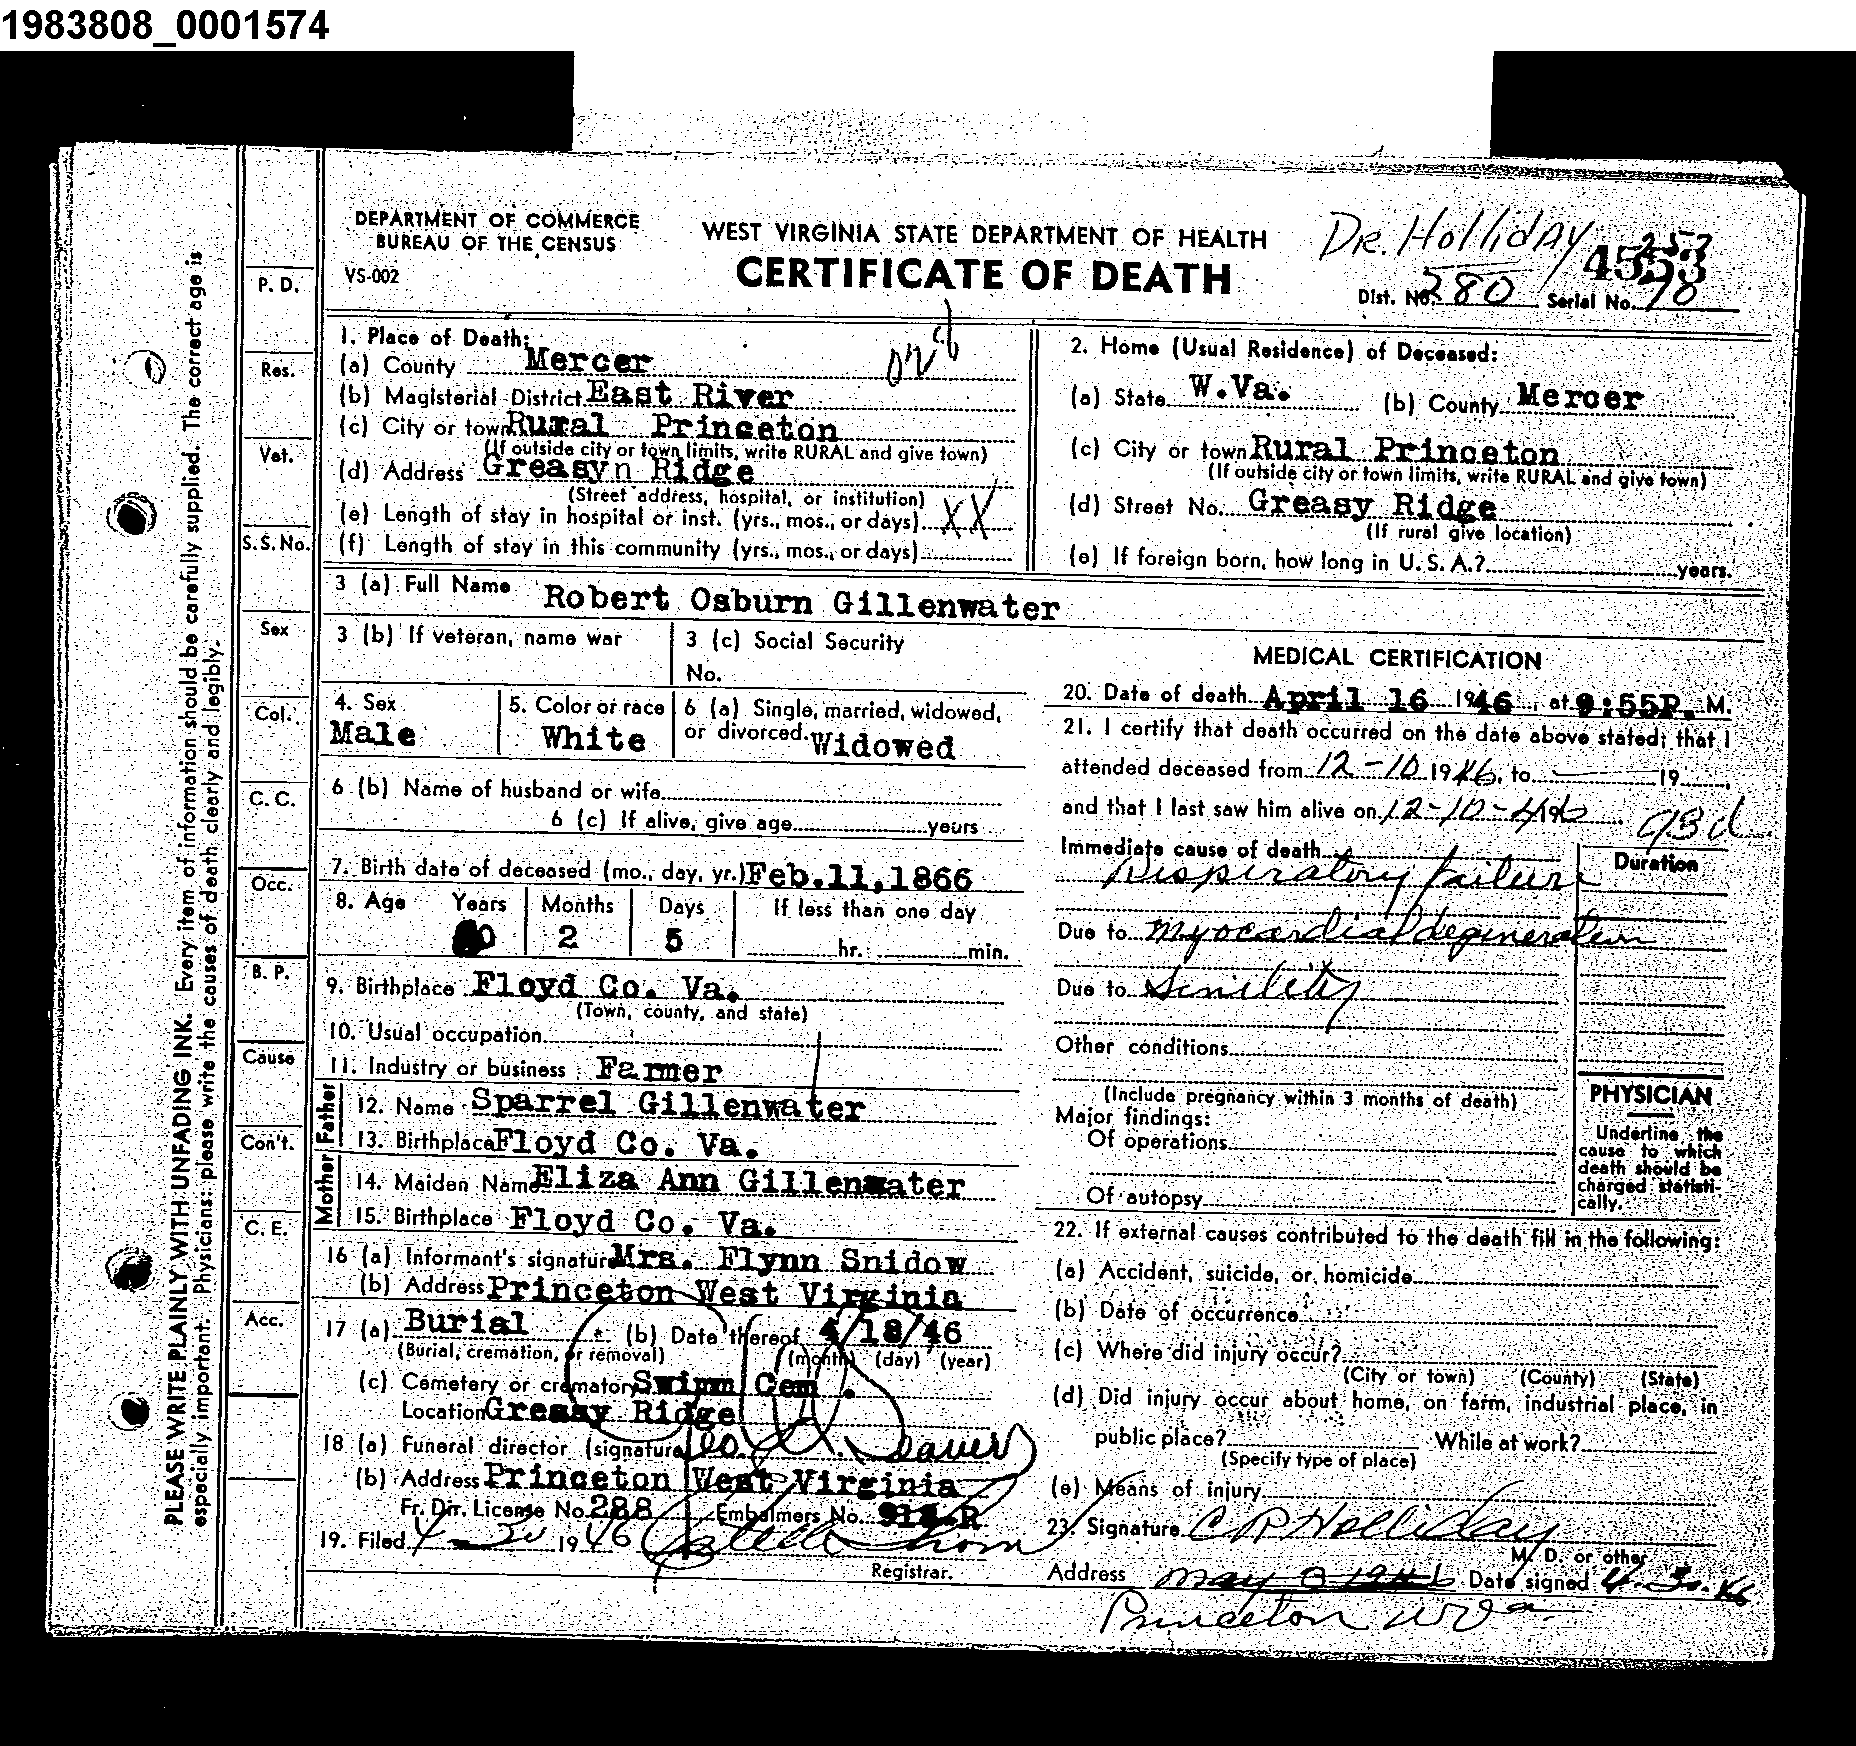 1983808_0001574
DEPARTMENT OF COMMERCE
BUREAU OF THE CENSUS
VS-002
WEST VIRGINIA STATE DEPARTMENT OF HEALTH
CERTIFICATE OF DEATH
DR. Holliday
Dist. No. 280 Serial No. 70
1. Place of Death:
(a) County Mercer
(b) Magisterial District East River
(c) City or town Rural Princeton
(If outside city or town limits, write RURAL and give town)
(d) Address Greasyn Ridge
(Street address, hospital, or institution)
(e) Length of stay in hospital or inst. (yrs., mos., or days) XX
(f) Length of stay in this community (yrs., mos., or days)
2. Home (Usual Residence) of Deceased:
(a) State W.Va. (b) County Mercer
(c) City or town Rural Princeton
(If outside city or town limits, write RURAL and give town)
(d) Street No. Greasy Ridge
(If rural give location)
(e) If foreign born, how long in U.S.A.? years.
3 (a) Full Name Robert Osburn Gillenwater
3 (b) If veteran, name war
3 (c) Social Security
No.
4. Sex
Male
5. Color or race
White
6 (a) Single, married, widowed,
or divorced. Widowed
6 (b) Name of husband or wife
6 (c) If alive, give age years
7. Birth date of deceased (mo., day, yr.) Feb.11,1866
8. Age Years Months Days If less than one day
80 2 5 hr. min.
9. Birthplace Floyd Co. Va.
(Town, county, and state)
10. Usual occupation
11. Industry or business Farmer
Father
12. Name Sparrel Gillenwater
13. Birthplace Floyd Co. Va.
Mother
14. Maiden Name Eliza Ann Gillenwater
15. Birthplace Floyd Co. Va.
16 (a) Informant's signature Mrs. Flynn Snidow
(b) Address Princeton West Virginia
17 (a) Burial (b) Date thereof 4/18/46
(Burial, cremation, or removal) (month) (day) (year)
(c) Cemetery or crematory Swimm Cem.
Location Greasy Ridge
18 (a) Funeral director (signature)
(b) Address Princeton West Virginia
Fr. Dir. License No. 288 Embalmers No.
19. Filed 4-30 1946
Registrar.
MEDICAL CERTIFICATION
20. Date of death April 16 1946, at 9:55P. M.
21. I certify that death occurred on the date above stated; that I
attended deceased from 12-10 1946, to 19
and that I last saw him alive on 12-10-46
93d
Immediate cause of death Duration
Respiratory failure
Due to Myocardial degeneration
Due to Senility
Other conditions
(Include pregnancy within 3 months of death)
Major findings:
Of operations
Of autopsy
PHYSICIAN
Underline the
cause to which
death should be
charged statisti-
cally.
22. If external causes contributed to the death fill in the following:
(a) Accident, suicide, or homicide
(b) Date of occurrence
(c) Where did injury occur?
(City or town) (County) (State)
(d) Did injury occur about home, on farm, industrial place, in
public place? While at work?
(Specify type of place)
(e) Means of injury
23. Signature C R Holliday
M. D. or other
Address May 3 1946 Date signed 4-30-46
Princeton W Va
P. D.
Res.
Vet.
S.S.No.
Sex
Col.
C. C.
Occ.
B. P.
Cause
Con't.
C. E.
Acc.
PLEASE WRITE PLAINLY WITH UNFADING INK. Every item of information should be carefully supplied. The correct age is
especially important. Physicians: please write the causes of death clearly and legibly.